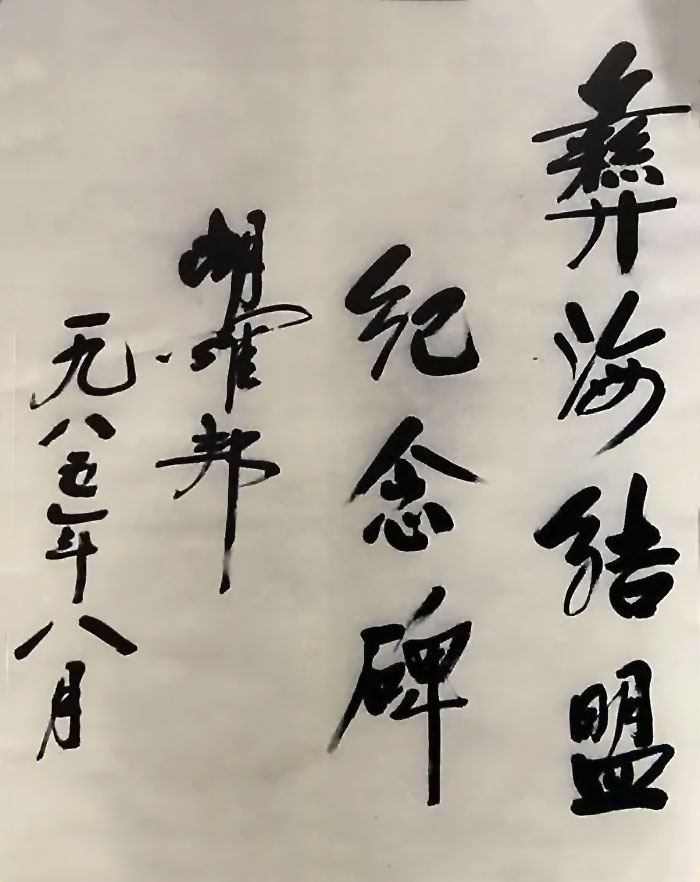 彝海结盟
纪念碑
胡耀邦
一九八五年八月